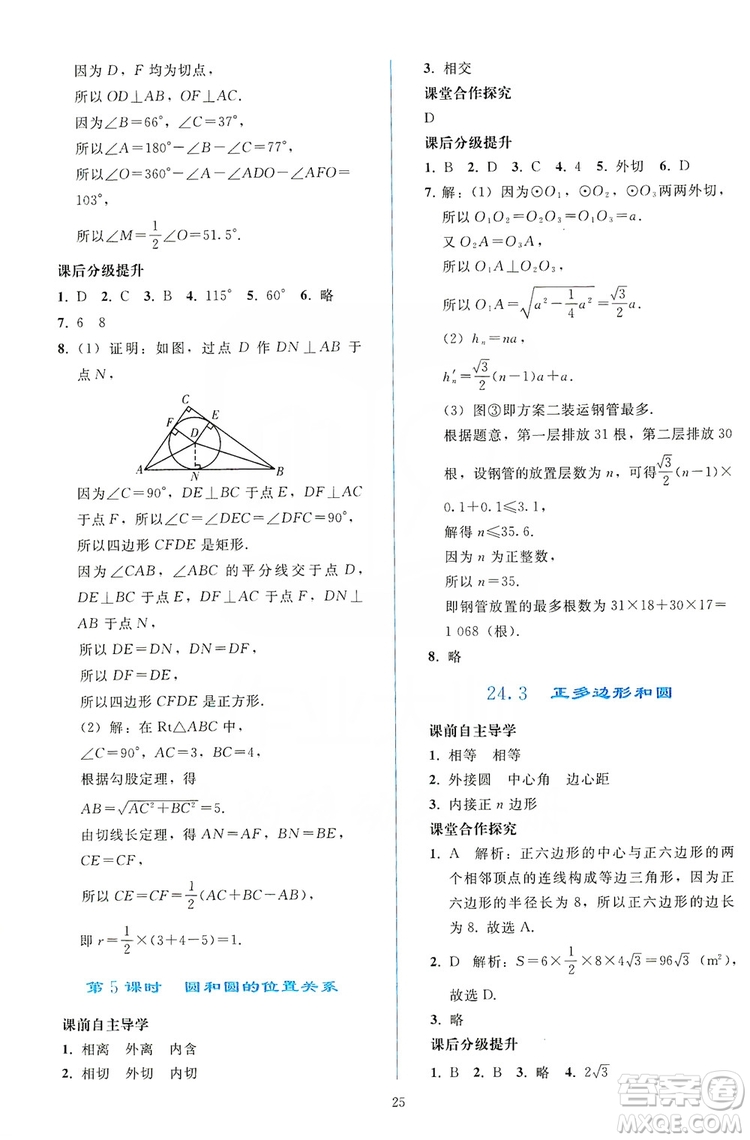 因为 D，F 均为切点，
所以 OD⊥AB，OF⊥AC.
因为∠B=66°，∠C=37°，
所以∠A=180°-∠B-∠C=77°，
所以∠O=360°-∠A-∠ADO-∠AFO=
103°，
所以∠M=1/2∠O=51.5°.
课后分级提升
1. D 2. C 3. B 4. 115° 5. 60° 6. 略
7. 6 8
8. (1) 证明：如图，过点 D 作 DN⊥AB 于
点 N，
C
F E
D
A N B
因为∠C=90°，DE⊥BC 于点 E，DF⊥AC 于
点 F，所以∠C=∠DEC=∠DFC=90°，
所以四边形 CFDE 是矩形.
因为∠CAB，∠ABC 的平分线交于点 D，
DE⊥BC 于点 E，DF⊥AC 于点 F，DN⊥
AB 于点 N，
所以 DE=DN，DN=DF，
所以 DF=DE，
所以四边形 CFDE 是正方形.
(2) 解：在 Rt△ABC 中，
∠C=90°，
根据勾股定理，得
AB=√(AC²+BC²)=5.
由切线长定理，得 AN=AF，BN=BE，
CE=CF，
所以 CE=CF=1/2(AC+BC-AB)，
即 r=1/2×(3+4-5)=1.
第 5 课时 圆和圆的位置关系
课前自主导学
1. 相离 外离 内含
2. 相切 外切 内切
3. 相交
课堂合作探究
D
课后分级提升
1. B 2. D 3. C 4. 4 5. 外切 6. D
7. 解：(1) 因为⊙O₁，⊙O₂，⊙O₃两两外切，
所以 O₁O₂=O₂O₃=O₁O₃=a.
又 O₂A=O₃A，
所以 O₁A⊥O₂O₃，
所以 O₁A=√(a²-1/4a²)=√3/2a.
(2) hₙ=na，
h′ₙ=√3/2(n-1)a+a.
(3) 图③即方案二装运钢管最多.
根据题意，第一层排放 31 根，第二层排放 30
根，设钢管的放置层数为 n，可得√3/2(n-1)×
0.1+0.1≤3.1，
解得 n≤35.6.
因为 n 为正整数，
所以 n=35.
即钢管放置的最多根数为 31×18+30×17=
1 068（根）.
8. 略
24.3 正多边形和圆
课前自主导学
1. 相等 相等
2. 外接圆 中心角 边心距
3. 内接正 n 边形
课堂合作探究
1. A 解析：正六边形的中心与正六边形的两
个相邻顶点的连线构成等边三角形，因此正
六边形的半径长为 8，所以正六边形的边长
为 8. 故选 A.
2. D 解析：S=6×1/2×8×4√3=96√3 (m²)，
故选 D.
3. 略
课后分级提升
1. B 2. B 3. 略 4. 2√3
25
答案圈
MXQE.COM